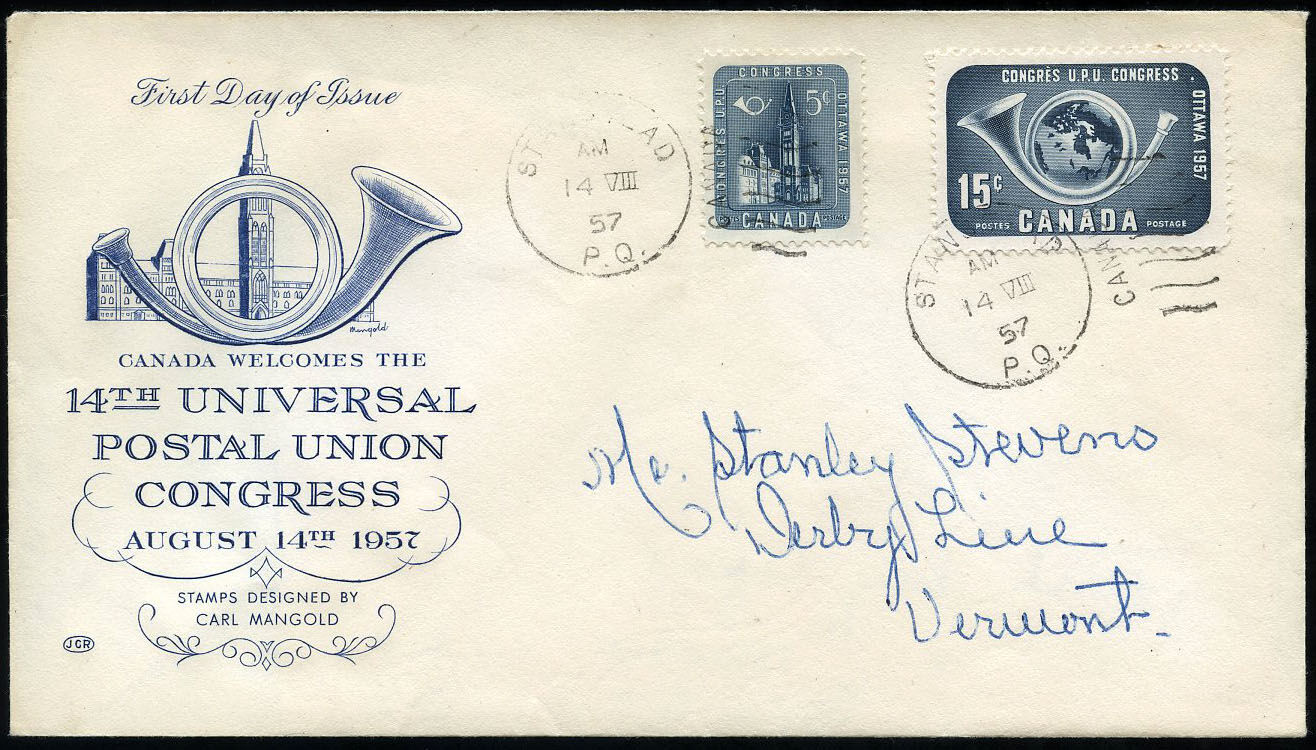 First Day of Issue
Mangold
CANADA WELCOMES THE
14TH UNIVERSAL
POSTAL UNION
CONGRESS
AUGUST 14TH 1957
STAMPS DESIGNED BY
CARL MANGOLD
JCR
AM
14 VIII
57
P.Q.
CANADA
CONGRÈS U.P.U. CONGRESS OTTAWA 1957
5¢
CANADA POSTAGE
CONGRÈS U.P.U. CONGRESS · OTTAWA 1957
15¢
POSTES CANADA POSTAGE
AM
14 VIII
57
P.Q.
Mr. Stanley Stevens
Derby Line
Vermont.